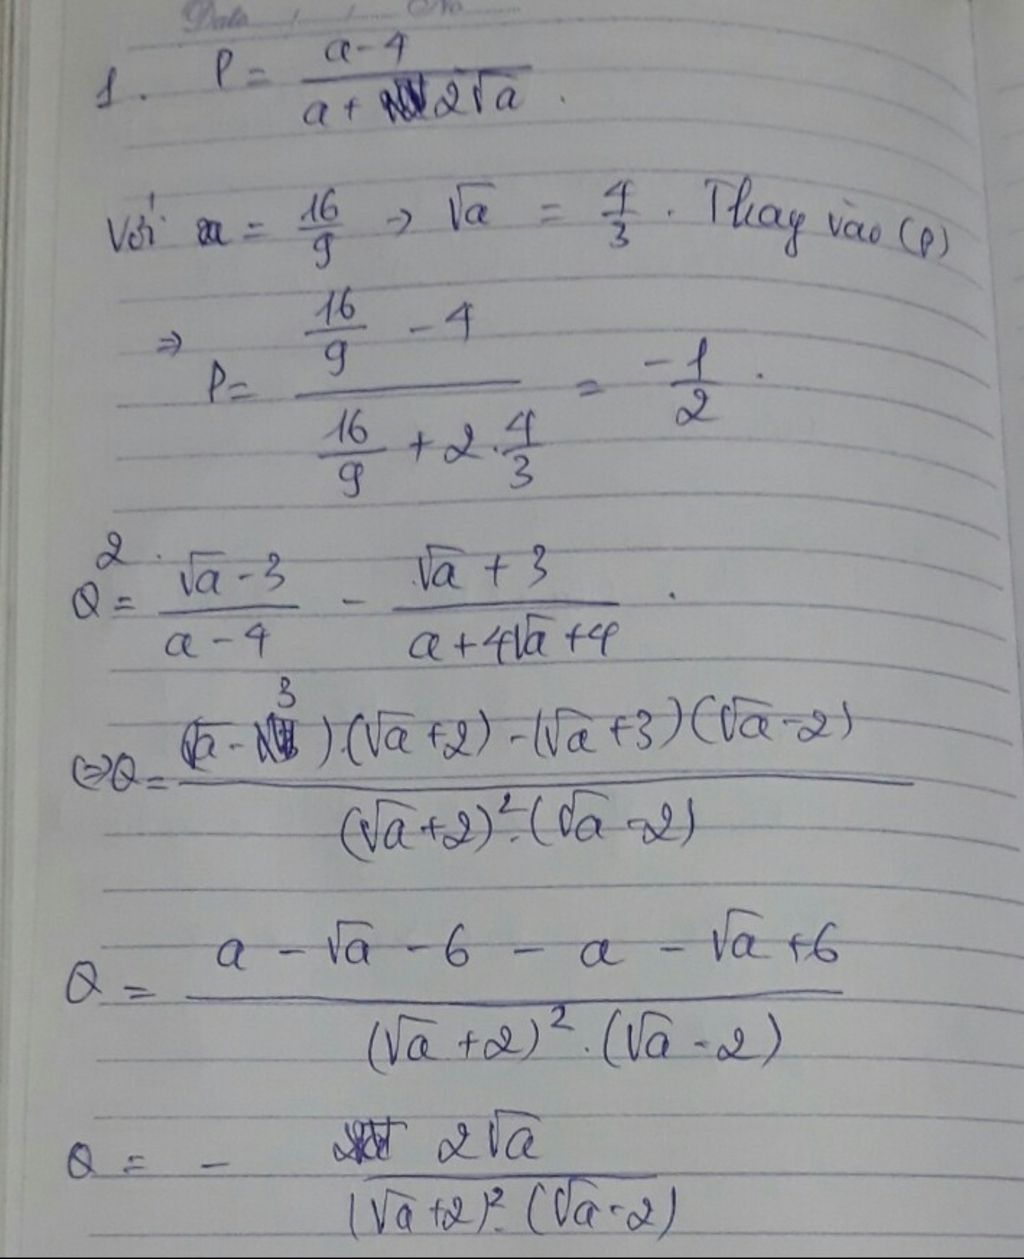 Date / / No
1. P = (a - 4) / (a + 2√a).
Với a = 16/9 → √a = 4/3. Thay vào (P)
⇒ P = (16/9 - 4) / (16/9 + 2.4/3) = -1/2.
2.
Q = (√a - 3) / (a - 4) - (√a + 3) / (a + 4√a + 4).
(⇒Q = ((√a - 3).(√a + 2) - (√a + 3)(√a - 2)) / ((√a + 2)².(√a - 2))
Q = (a - √a - 6 - a - √a + 6) / ((√a + 2)².(√a - 2))
Q = - 2√a / ((√a + 2)².(√a - 2))